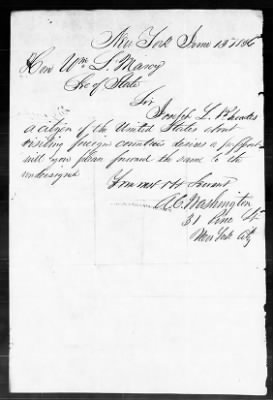 New York June 13th 1856
Hon Wm L. Marcy
Sec of State
Sir
Joseph L. Rhoades
a citizen of the United States about
visiting foreign countries desires a passport
will you please forward the same to the
undersigned
Your mt Obt Servant
A. C. Washington
31 Pine St
New York City